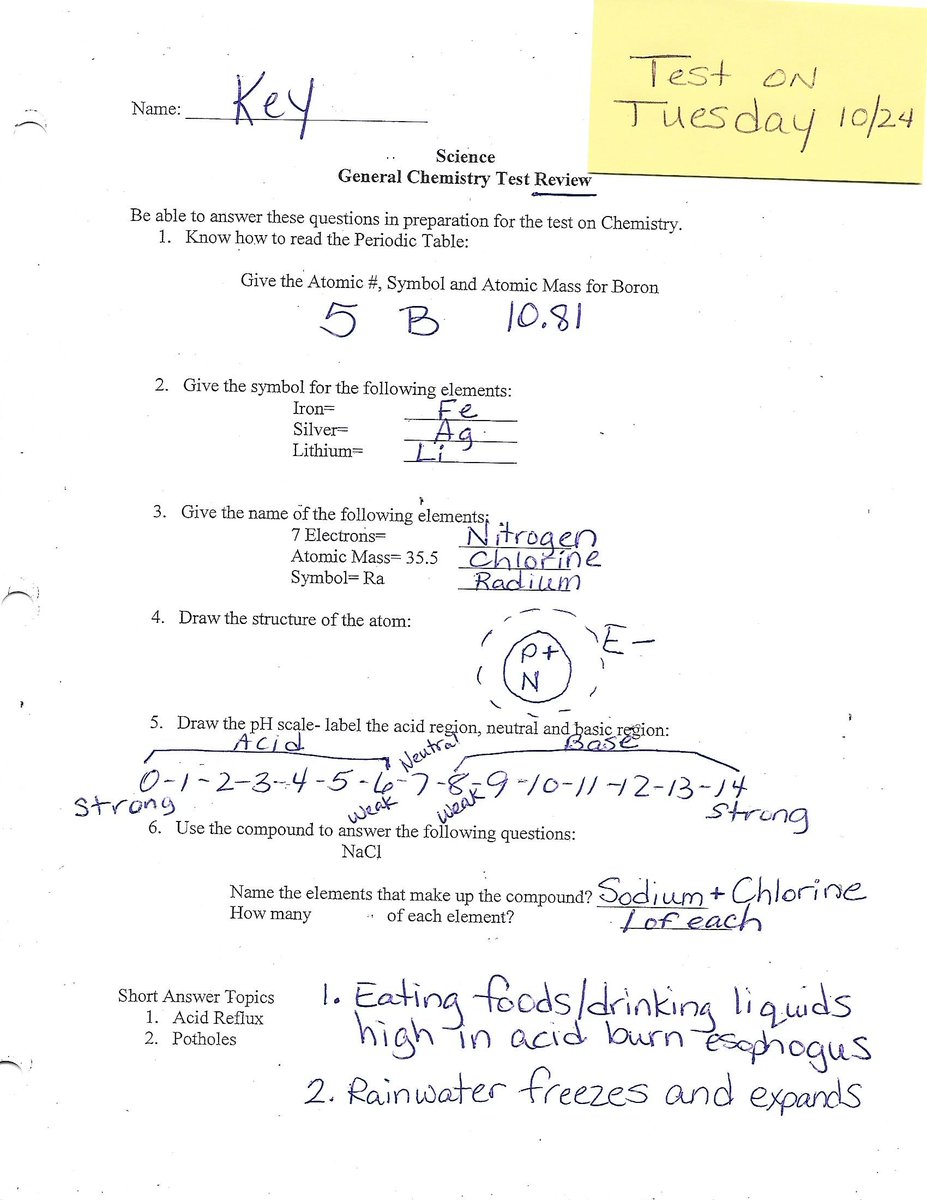 Test on
Tuesday 10/24
Name: Key
Science
General Chemistry Test Review
Be able to answer these questions in preparation for the test on Chemistry.
1. Know how to read the Periodic Table:
Give the Atomic #, Symbol and Atomic Mass for Boron
5 B 10.81
2. Give the symbol for the following elements:
Iron= Fe
Silver= Ag
Lithium= Li
3. Give the name of the following elements:
7 Electrons= Nitrogen
Atomic Mass= 35.5 Chlorine
Symbol= Ra Radium
4. Draw the structure of the atom:
P+ E-
N
5. Draw the pH scale- label the acid region, neutral and basic region:
Acid Neutral Base
0-1-2-3-4-5-6-7-8-9-10-11-12-13-14
Strong weak weak Strong
6. Use the compound to answer the following questions:
NaCl
Name the elements that make up the compound? Sodium + Chlorine
How many of each element? 1 of each
Short Answer Topics
1. Acid Reflux
2. Potholes
1. Eating foods/drinking liquids
high in acid burn esophogus
2. Rainwater freezes and expands